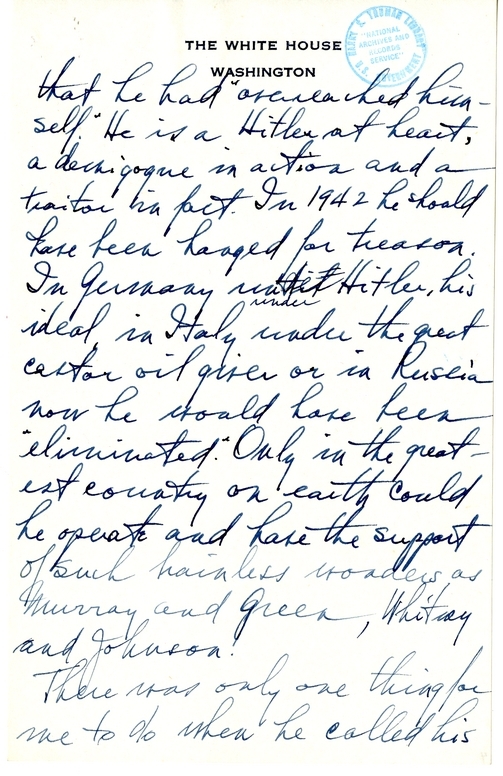 THE WHITE HOUSE
WASHINGTON
HARRY S. TRUMAN LIBRARY
"NATIONAL
ARCHIVES AND
RECORDS
SERVICE"
U.S. GOVERNMENT
that he had "overreached him-
self." He is a Hitler at heart,
a demigogue in action and a
traitor in fact. In 1942 he should
have been hanged for treason.
In Germany under Hitler, his
ideal, in Italy under the great
castor oil giver or in Russia
now he would have been
"eliminated." Only in the great-
est country on earth could
he operate and have the support
of such brainless wonders as
Murray and Green, Whitney
and Johnson.
There was only one thing for
me to do when he called his